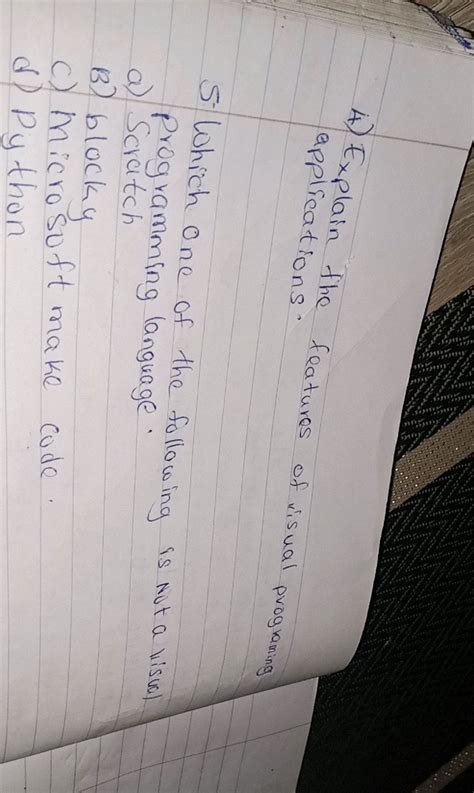 4) Explain the features of visual programing
applications.
5. Which one of the following is Not a visual
programming language.
a) Scratch
B) blocky
c) microsoft make code.
d) Python